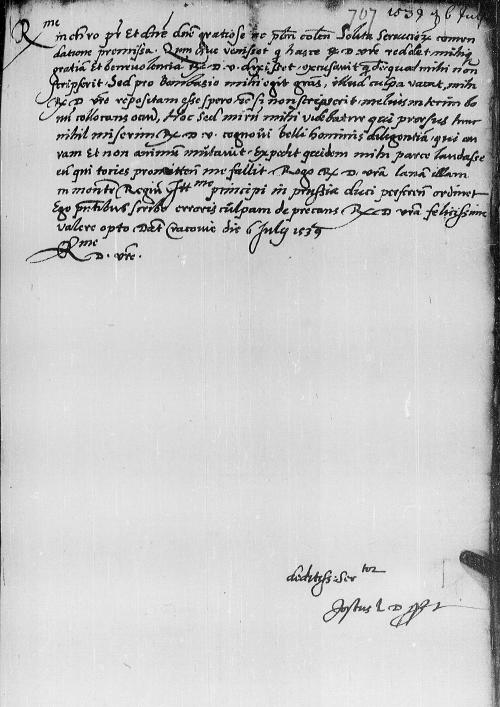 707 1539 6 Jul
R me
in chro pr Et dne dne gratiose ac colen Solita Servicior commen
datione premissa. Cum huc venisset q hasce R. D. vre reddet mihi
gratia Et benevolentia R. D. v. dixisset excusavit q de qua mihi non
scripserit. Sed pro bombasio mihi egit gras, illud culpa vacat, mihi
R. D. vre repositam esse spero si non scripserit melius interim
collocans Hoc sed miru mihi videbatur qui prorsus tunc
nihil miserim R. D. v. cognovi belli hominis diligentia, qui
vam Et non animu mutavit. Expedit quidem mihi parce laudasse
eu qui toties promitten me fallit Rogo R. D. vra lana illam
in monte Regiu Ill me principi in prussia duci perferen ordinet
Ego pntibus scribo erroris culpam deprecans R. D. vra felicissime
valere opto Dat Cracovie die 6 July 1539
R me
D. vre.
deditiss: Ser tor
Jostus L D